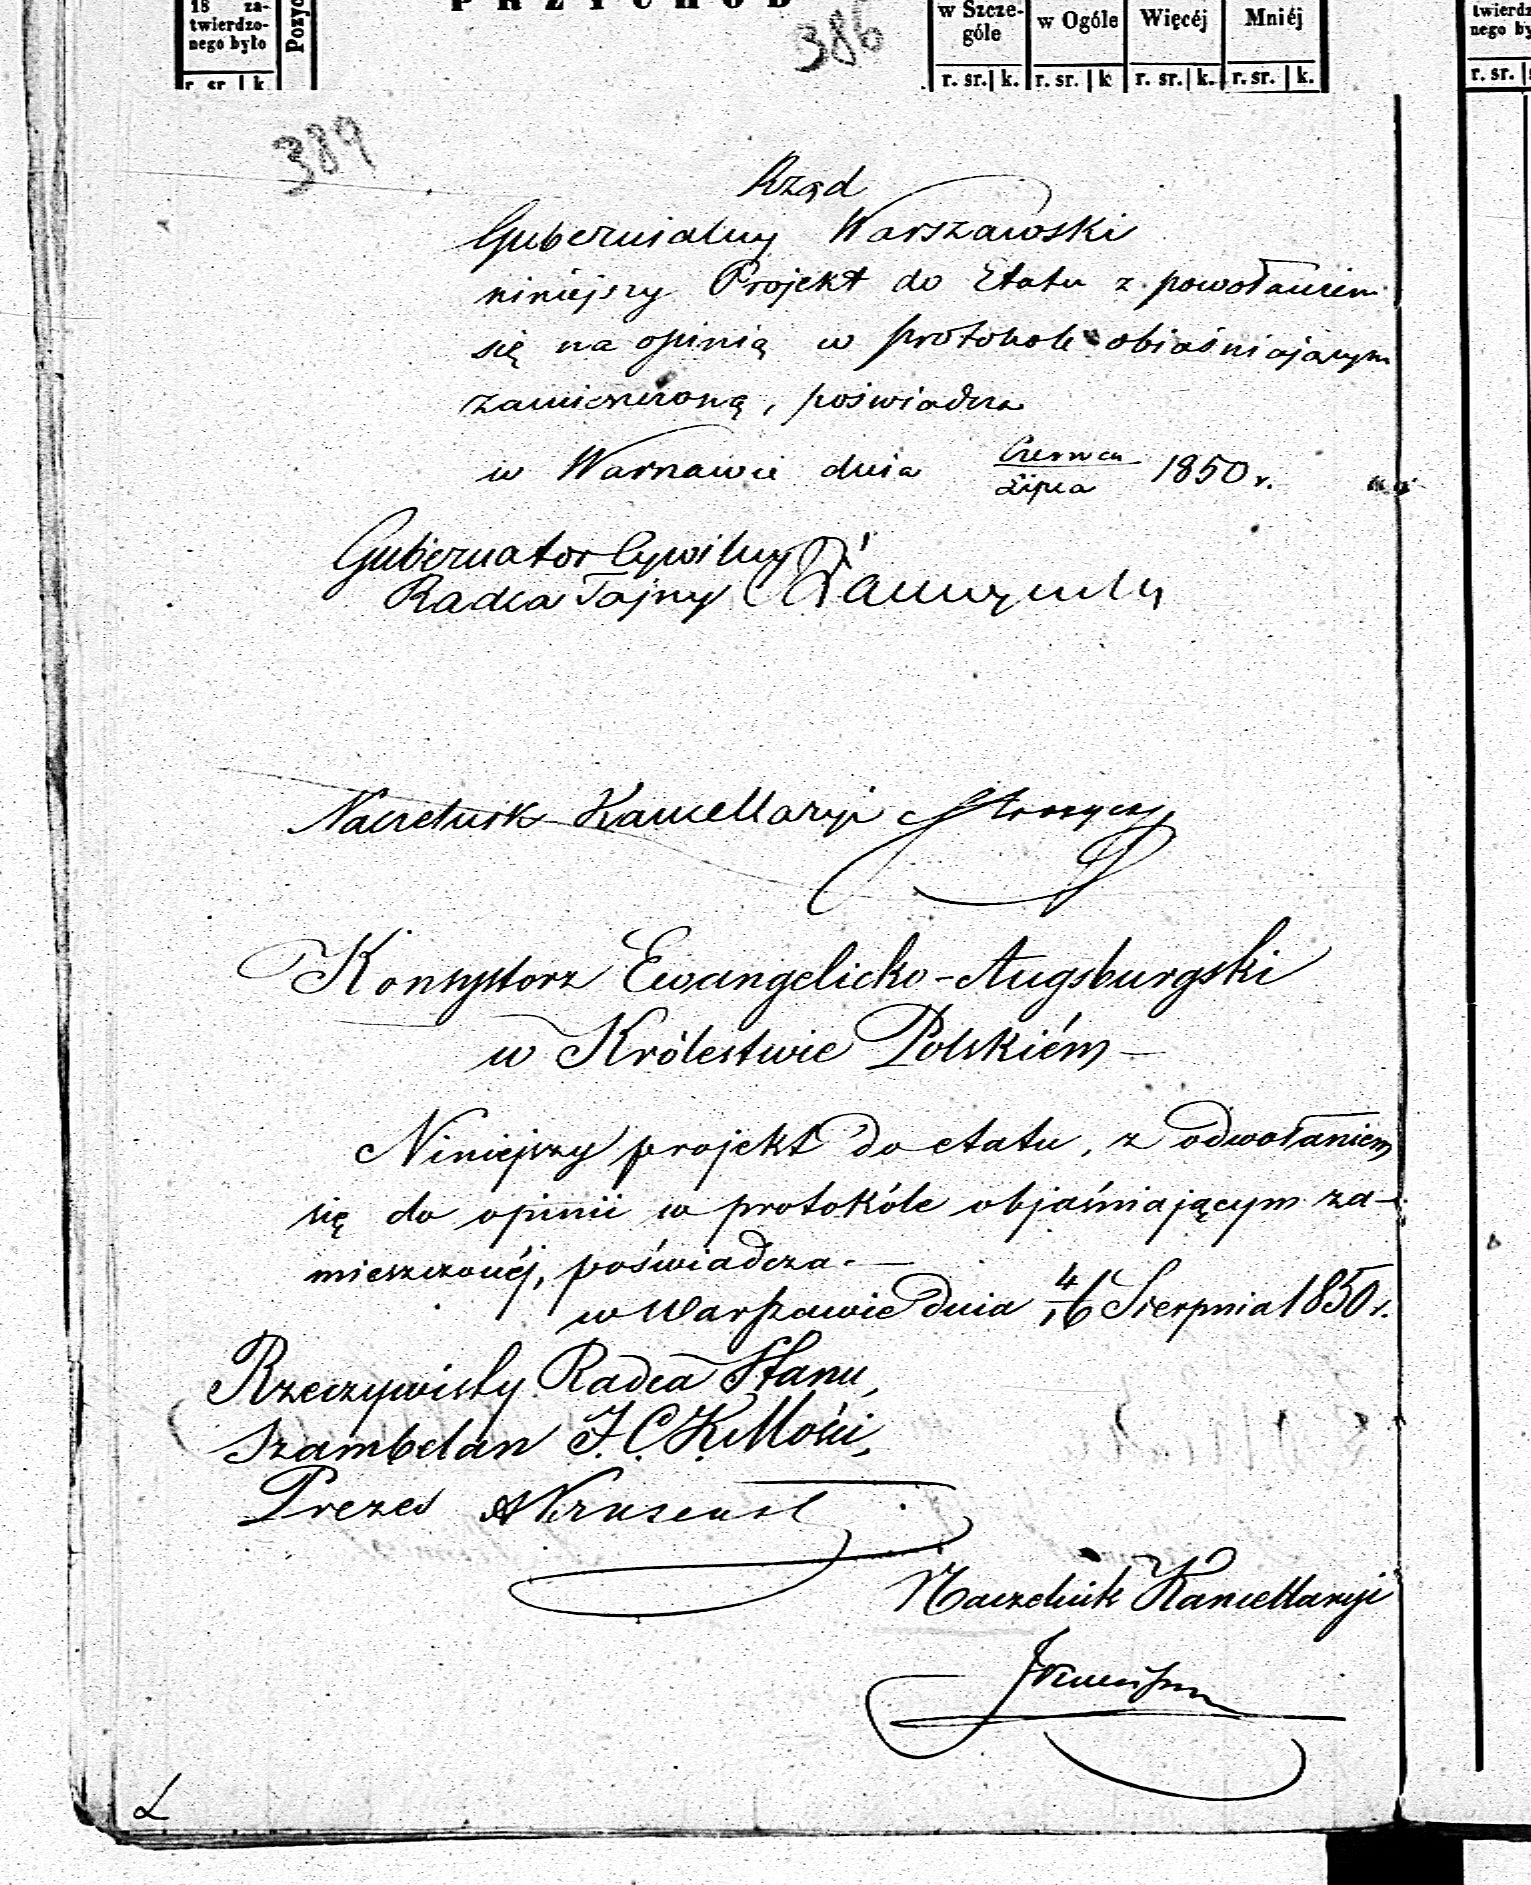 18 za-
twierdzo-
nego było
r. sr. | k.
PRZYCHÓD
w Szcze-
góle
w Ogóle
Więcéj
Mniéj
r. sr. | k.
r. sr. | k
r. sr. | k.
r. sr. | k.
r. sr.
386
389
Rząd
Gubernialny Warszawski
niniejszy Projekt do Etatu z powołaniem
się na opinią w protokole obiaśniającym
zamieszczoną, poświadcza
w Warszawie dnia Czerwca/Lipca 1850 r.
Gubernator Cywilny
Radca Tajny
Naczelnik Kancellaryi
Konsystorz Ewangelicko-Augsburgski
w Królestwie Polskiém —
Niniejszy projekt do etatu, z odwołaniem
się do opinii w protokóle objaśniającym za-
mieszczonéj, poświadcza. —
w Warszawie dnia 4/16 Sierpnia 1850 r.
Rzeczywisty Radca Stanu,
Szambelan J. C. K. Mości,
Prezes
Naczelnik Kancellaryi